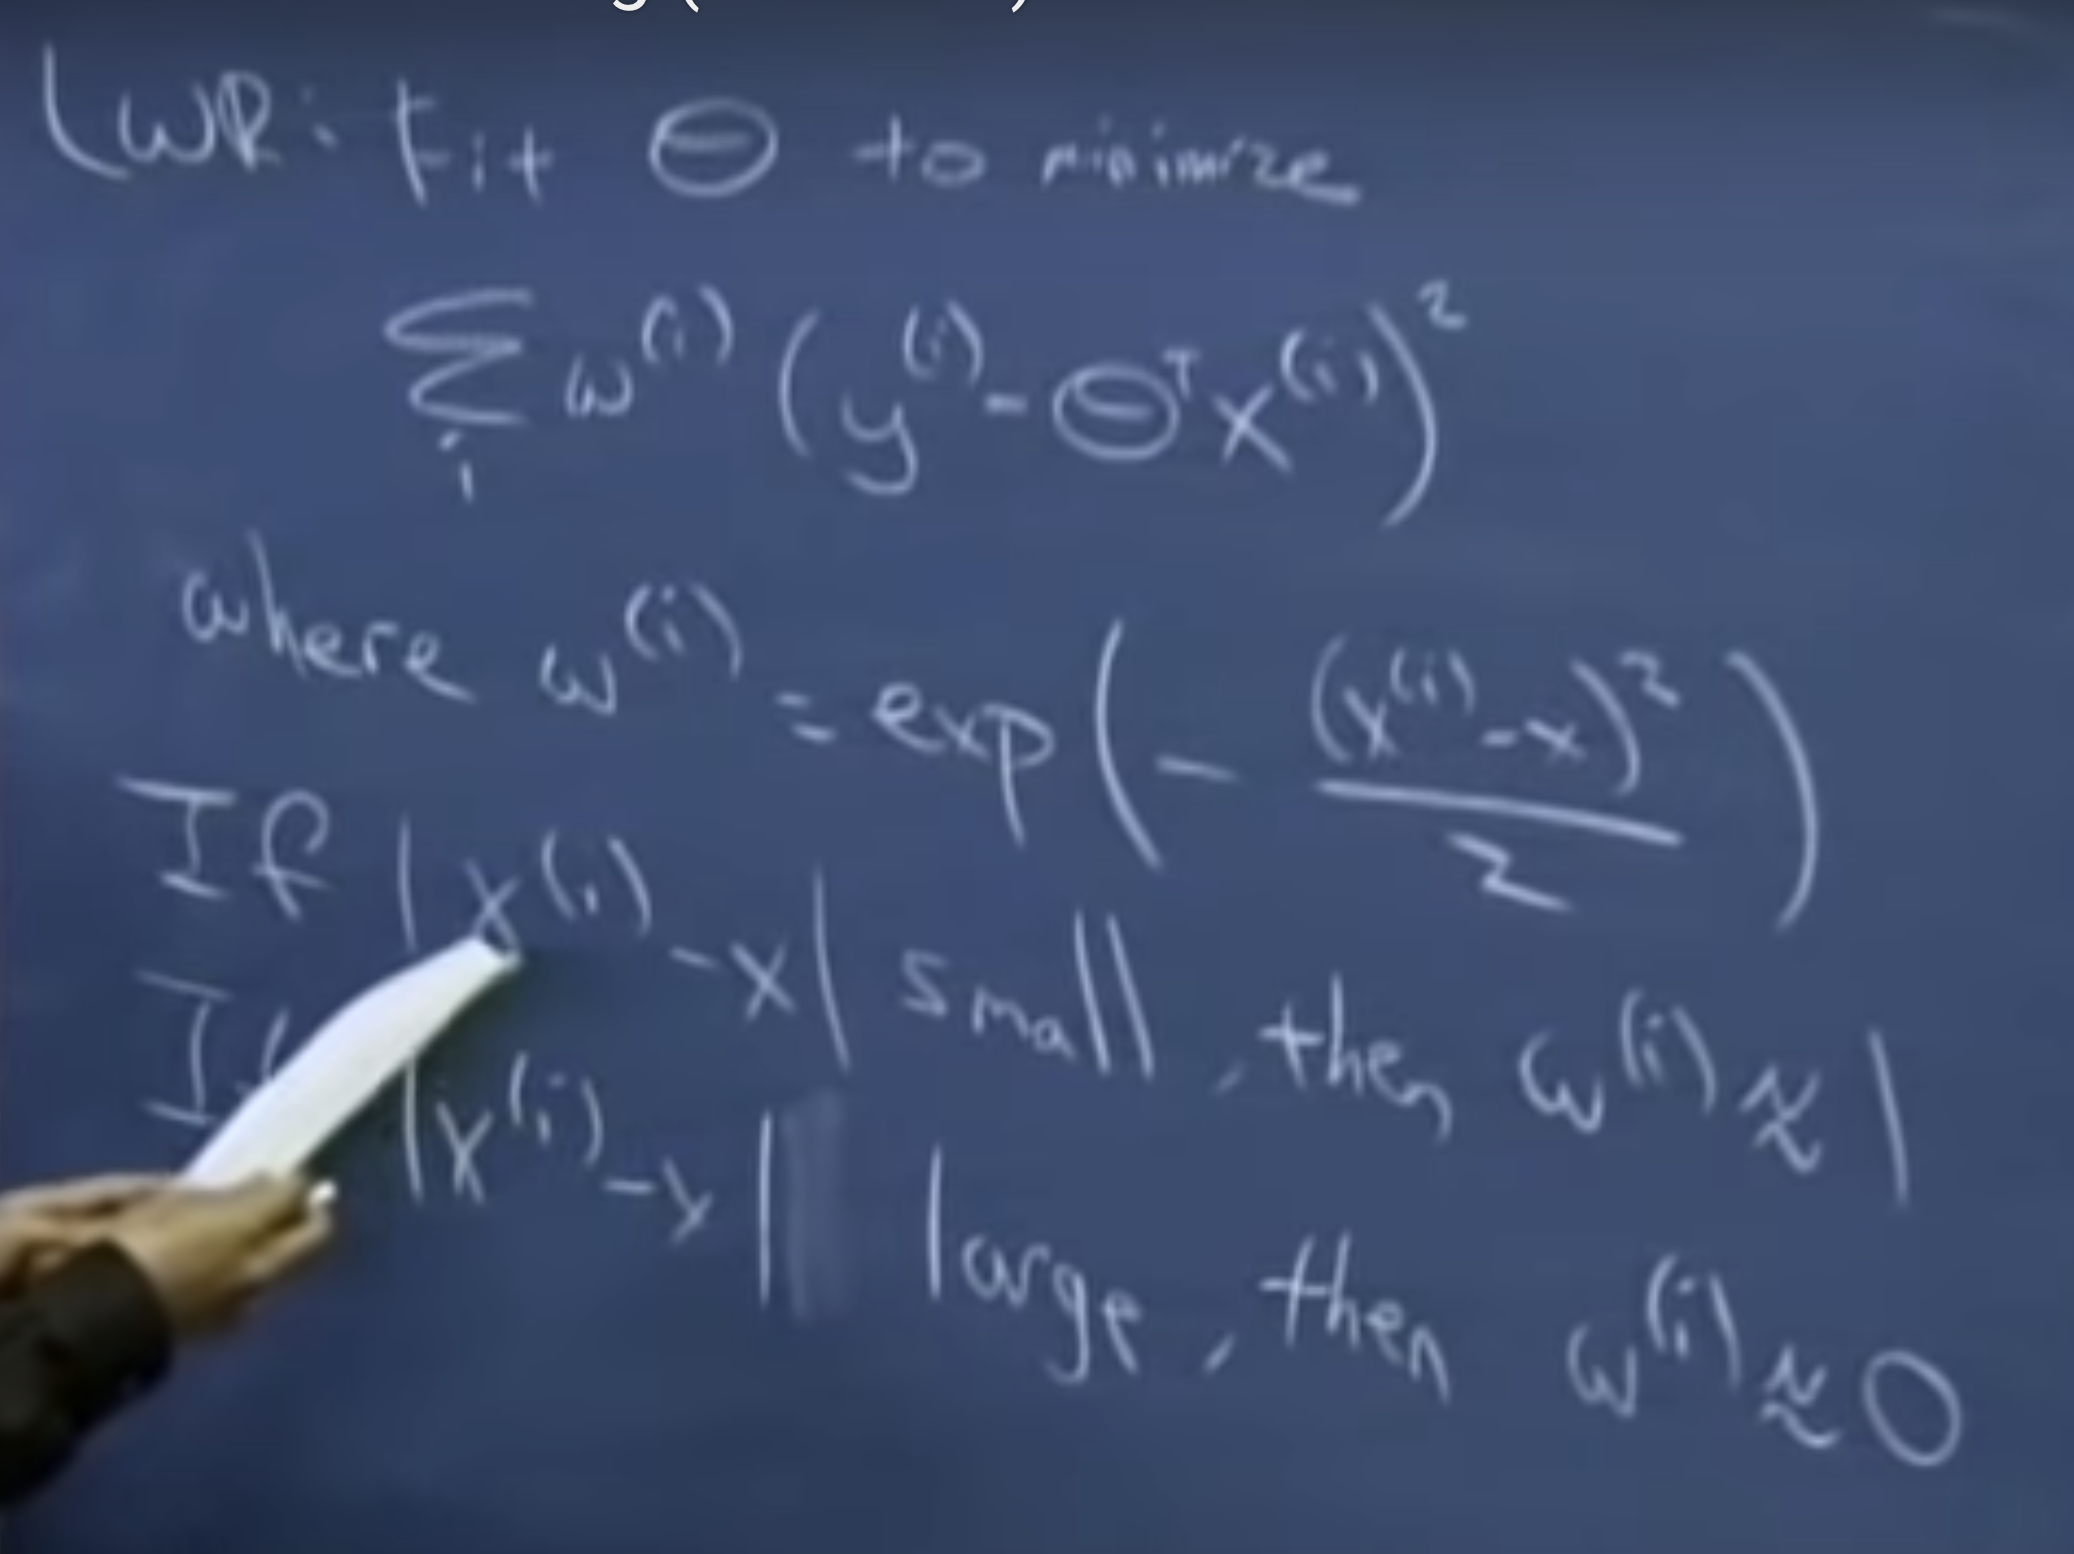 LWR: Fit Θ to minimize
∑ᵢ ω⁽ⁱ⁾ (y⁽ⁱ⁾ - Θᵀx⁽ⁱ⁾)²
where ω⁽ⁱ⁾ = exp(- (x⁽ⁱ⁾-x)² / 2)
If |x⁽ⁱ⁾-x| small, then ω⁽ⁱ⁾ ≈ 1
If |x⁽ⁱ⁾-x| large, then ω⁽ⁱ⁾ ≈ 0